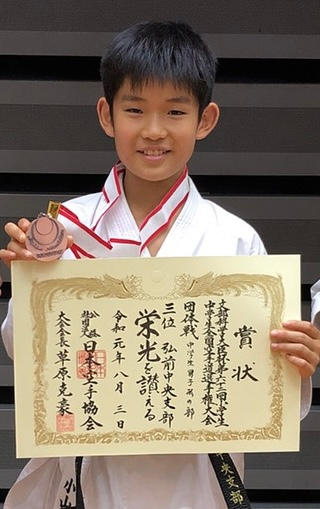 賞状
文部科学大臣杯第六十二回小学生
中学生全国空手道選手権大会
団体戦 中学生 男子形の部
三位 弘前中央支部
栄光を讃える
令和元年八月三日
公益
社団法人 日本空手協会
大会会長 草原克豪
中央支部
小山